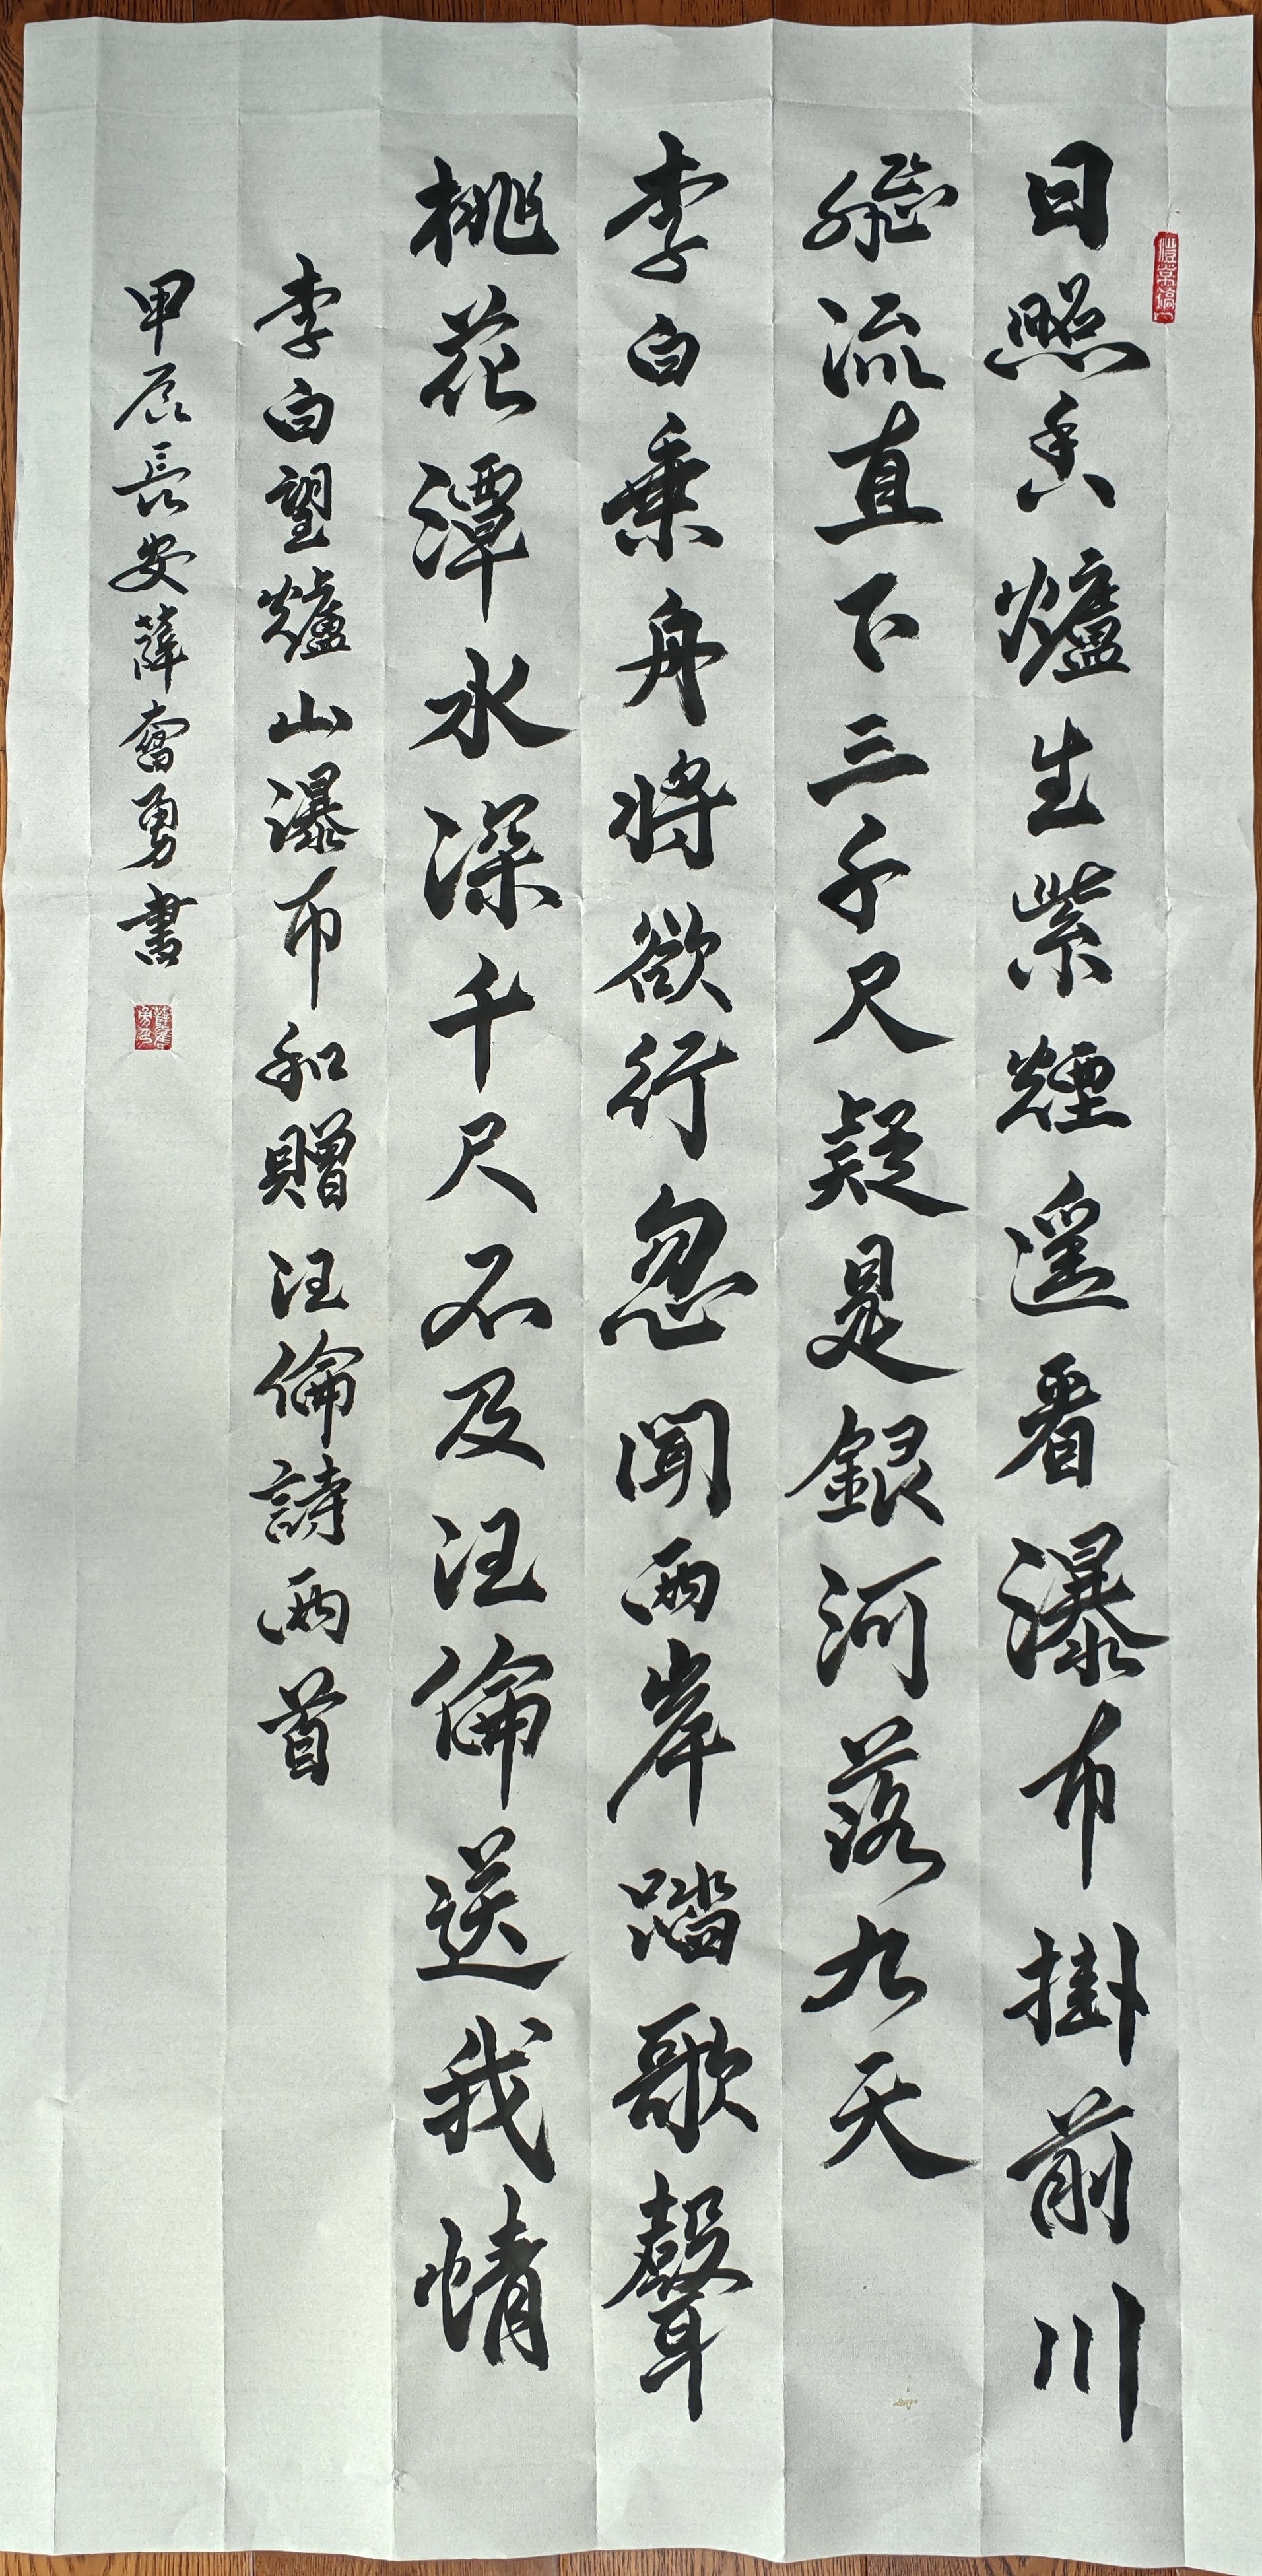 日照香爐生紫煙遥看瀑布掛前川
飛流直下三千尺疑是銀河落九天
李白乗舟將欲行忽聞兩岸踏歌聲
桃花潭水深千尺不及汪倫送我情
李白望爐山瀑布和贈汪倫詩兩首
甲辰長安薛奮勇書